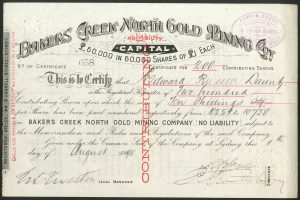 BAKERS CREEK NORTH GOLD MINING Co
NO LIABILITY.
CAPITAL
£50,000 IN 50,000 SHARES OF £1 EACH
No OF CERTIFICATE 658 CERTIFICATE FOR 200 CONTRIBUTING SHARES
This is to Certify that Edward
is the Registered Proprietor of Two hundred
Contributing Shares upon which the sum of Ten Shillings
per Share has been paid numbered respectively from 10551 to 10750
in BAKERS CREEK NORTH GOLD MINING COMPANY, NO LIABILITY, subject to the
Memorandum and Rules and Regulations of the said Company
Given under the Common Seal of the Company at Sydney this 11th
day of August 1890
LEGAL MANAGER
CONTRIBUTING